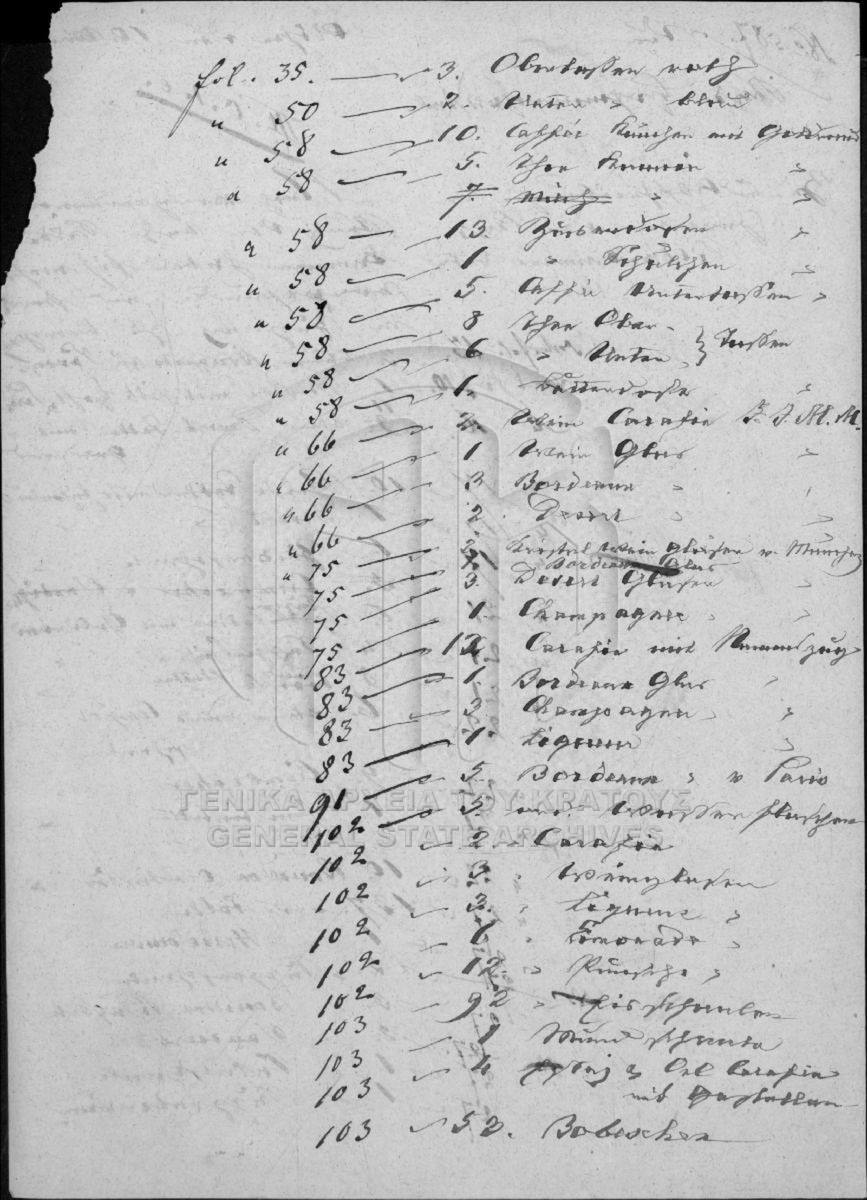 fol. 35. — 3. Obertassen roth
" 50 — 2. Unter " blau
" 58 — 10. Caffée Kännchen mit
" 58 — 5. Thee Kannen "
7. Milch " "
" 58 — 13. Zuckerdosen "
" 58 — 1 " Schälchen "
" 58 — 5. Caffée Untertassen "
" 58 — 8 Thee Ober- } Tassen
" 58 — 6 " Unter
" 58 — 1. Butterdose "
" 58 — 2. Wein Carafin
" 66 — 1 Wein Glas "
" 66 — 3 Bordeaux "
" 66 — 2. Desert " "
" 66 — 2. Kristal Wein Gläser v. München
" 75 — Bordeaux Glas
75 — 3. Desert Gläser "
75 — 1 Champagner " "
75 — 12 Carafin mit Namenszug
83 — 1. Bordeaux Glas "
83 — 3 Champagner "
83 — 1. Liqueur "
83 — 5. Bordeaux " v Paris
91 — 5. Wasser flaschen
102 — 2. " Carafin
102 3. " Weingläser
102 3. " Liqueur "
102 6 " Limonade "
102 12 " Punsche "
102 92 " Eisschaalen
103 1 Mund
103 4 Essig & Oel Carafin
103 mit Gestellen
103 52. Bobeschen
ΓΕΝΙΚΑ ΑΡΧΕΙΑ ΤΟΥ ΚΡΑΤΟΥΣ
GENERAL STATE ARCHIVES